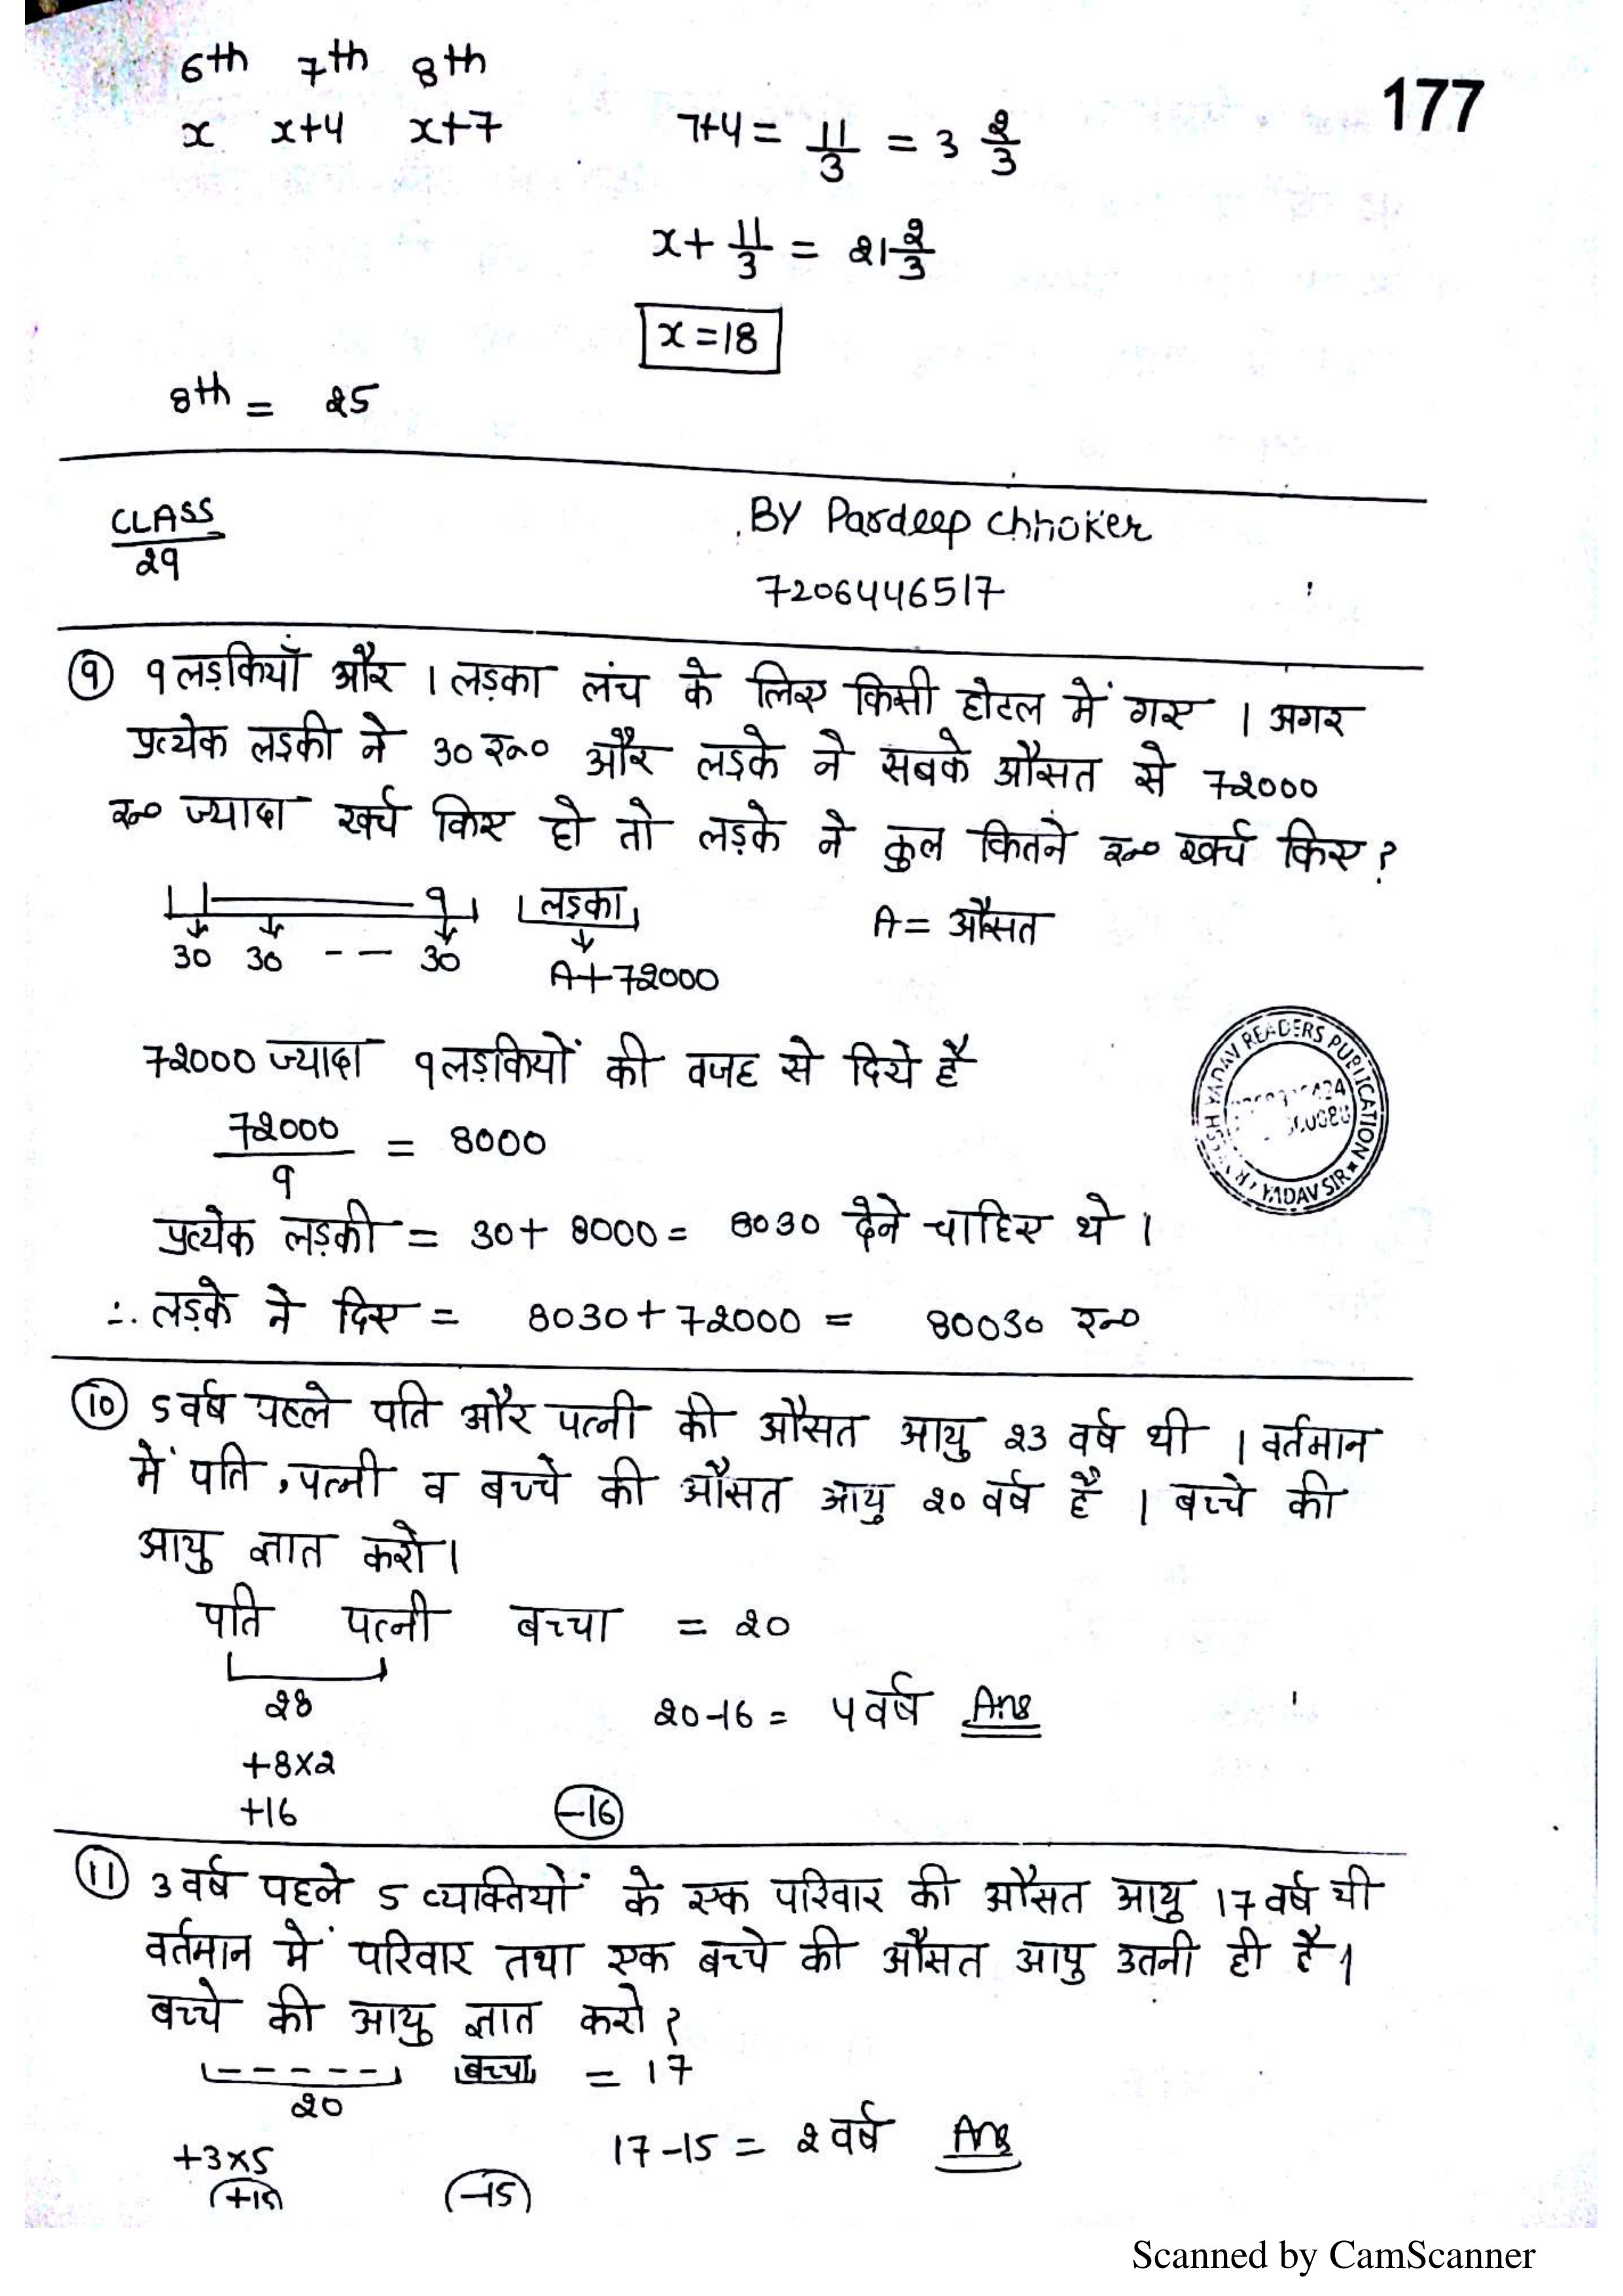 6th 7th 8th
x x+4 x+7
7+4 = 11/3 = 3 2/3
177
x + 11/3 = 21 2/3
x = 18
8th = 25
CLASS
29
BY Pardeep Chhoker
7206446517
⑨ 9 लड़कियाँ और 1 लड़का लंच के लिए किसी होटल में गए । अगर
प्रत्येक लड़की ने 30 रू० और लड़के ने सबके औसत से 72000
रू० ज्यादा खर्च किए हो तो लड़के ने कुल कितने रू० खर्च किए ?
9 लड़का
30 30 -- 30
A+72000
A = औसत
72000 ज्यादा 9 लड़कियों की वजह से दिये है
72000/9 = 8000
प्रत्येक लड़की = 30 + 8000 = 8030 देने चाहिए थे ।
∴ लड़के ने दिए = 8030 + 72000 = 80030 रू०
READERS PUBLICATION
YADAV SIR
⑩ 5 वर्ष पहले पति और पत्नी की औसत आयु 23 वर्ष थी । वर्तमान
में पति, पत्नी व बच्चे की औसत आयु 20 वर्ष है । बच्चे की
आयु ज्ञात करो ।
पति पत्नी बच्चा = 20
28
20-16 = 4 वर्ष Ans
+8×2
+16 -16
⑪ 3 वर्ष पहले 5 व्यक्तियों के एक परिवार की औसत आयु 17 वर्ष थी
वर्तमान में परिवार तथा एक बच्चे की औसत आयु उतनी ही है ।
बच्चे की आयु ज्ञात करो ?
----- बच्चा = 17
20
17-15 = 2 वर्ष Ans
+3×5
+15 -15
Scanned by CamScanner